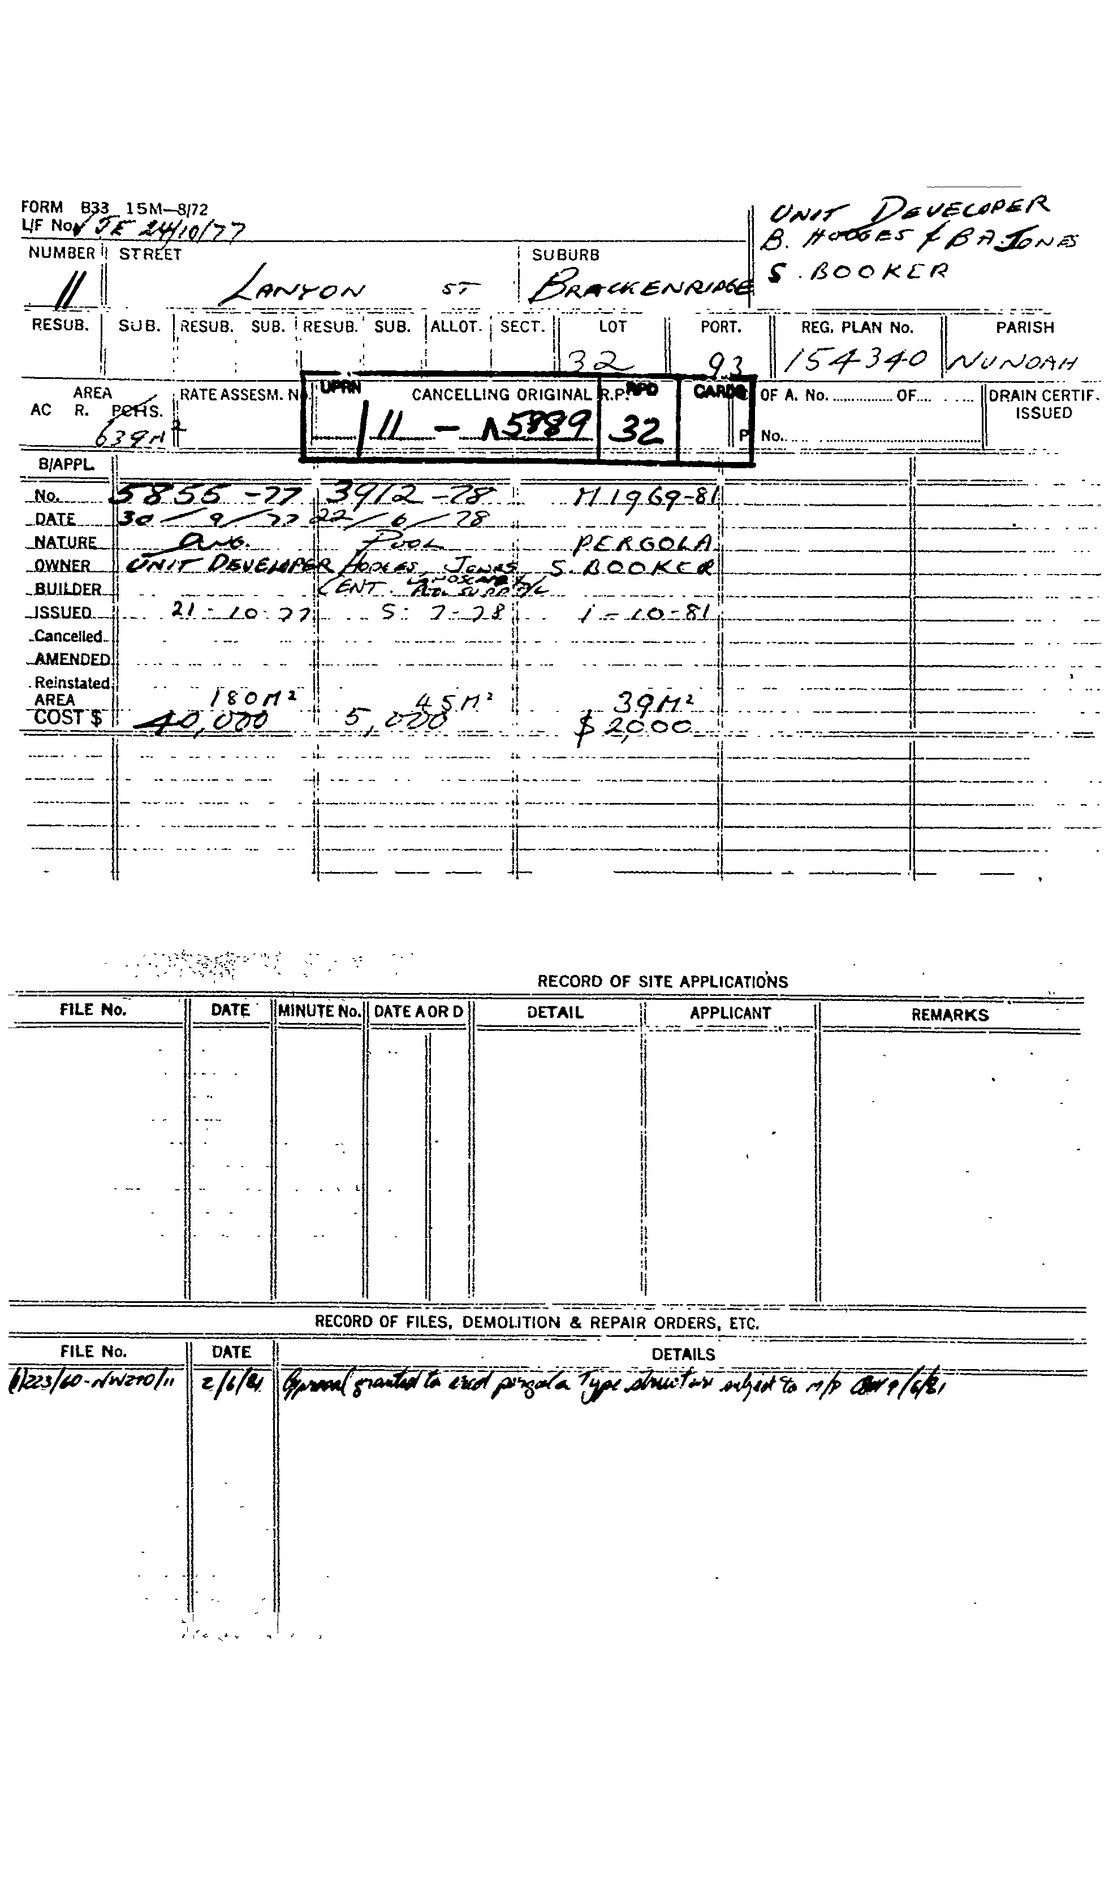 FORM B33 15M—8/72
L/F No. JE 24/10/77
UNIT DEVELOPER
B. HODGES & B A. JONES
S. BOOKER
NUMBER STREET SUBURB
11 LANYON ST BRACKENRIDGE
RESUB. SUB. RESUB. SUB. RESUB. SUB. ALLOT. SECT. LOT PORT. REG. PLAN No. PARISH
32 93 154340 NUNDAH
AREA RATE ASSESM. No. UPRN CANCELLING ORIGINAL R.P. RPD CARDS OF A. No. OF DRAIN CERTIF.
AC R. PCHS. ISSUED
639M² 11 - 5889 32 P No.
B/APPL.
No. 5855-77 3912-78 M1969-81
DATE 30/9/77 22/6/78
NATURE Dwg. POOL PERGOLA
OWNER UNIT DEVELOPER HODGES, JONES S. BOOKER
BUILDER CENT. LANDSCAPE & POOL SUPP P/L
ISSUED 21-10-77 5-7-78 1-10-81
Cancelled
AMENDED
Reinstated
AREA 180M² 45M² 39M²
COST $ 40,000 5,000 $2,000
RECORD OF SITE APPLICATIONS
FILE No. DATE MINUTE No. DATE A OR D DETAIL APPLICANT REMARKS
RECORD OF FILES, DEMOLITION & REPAIR ORDERS, ETC.
FILE No. DATE DETAILS
223/60-NW270/11 2/6/81 Approval granted to erect pergola Type structure subject to 9/6/81